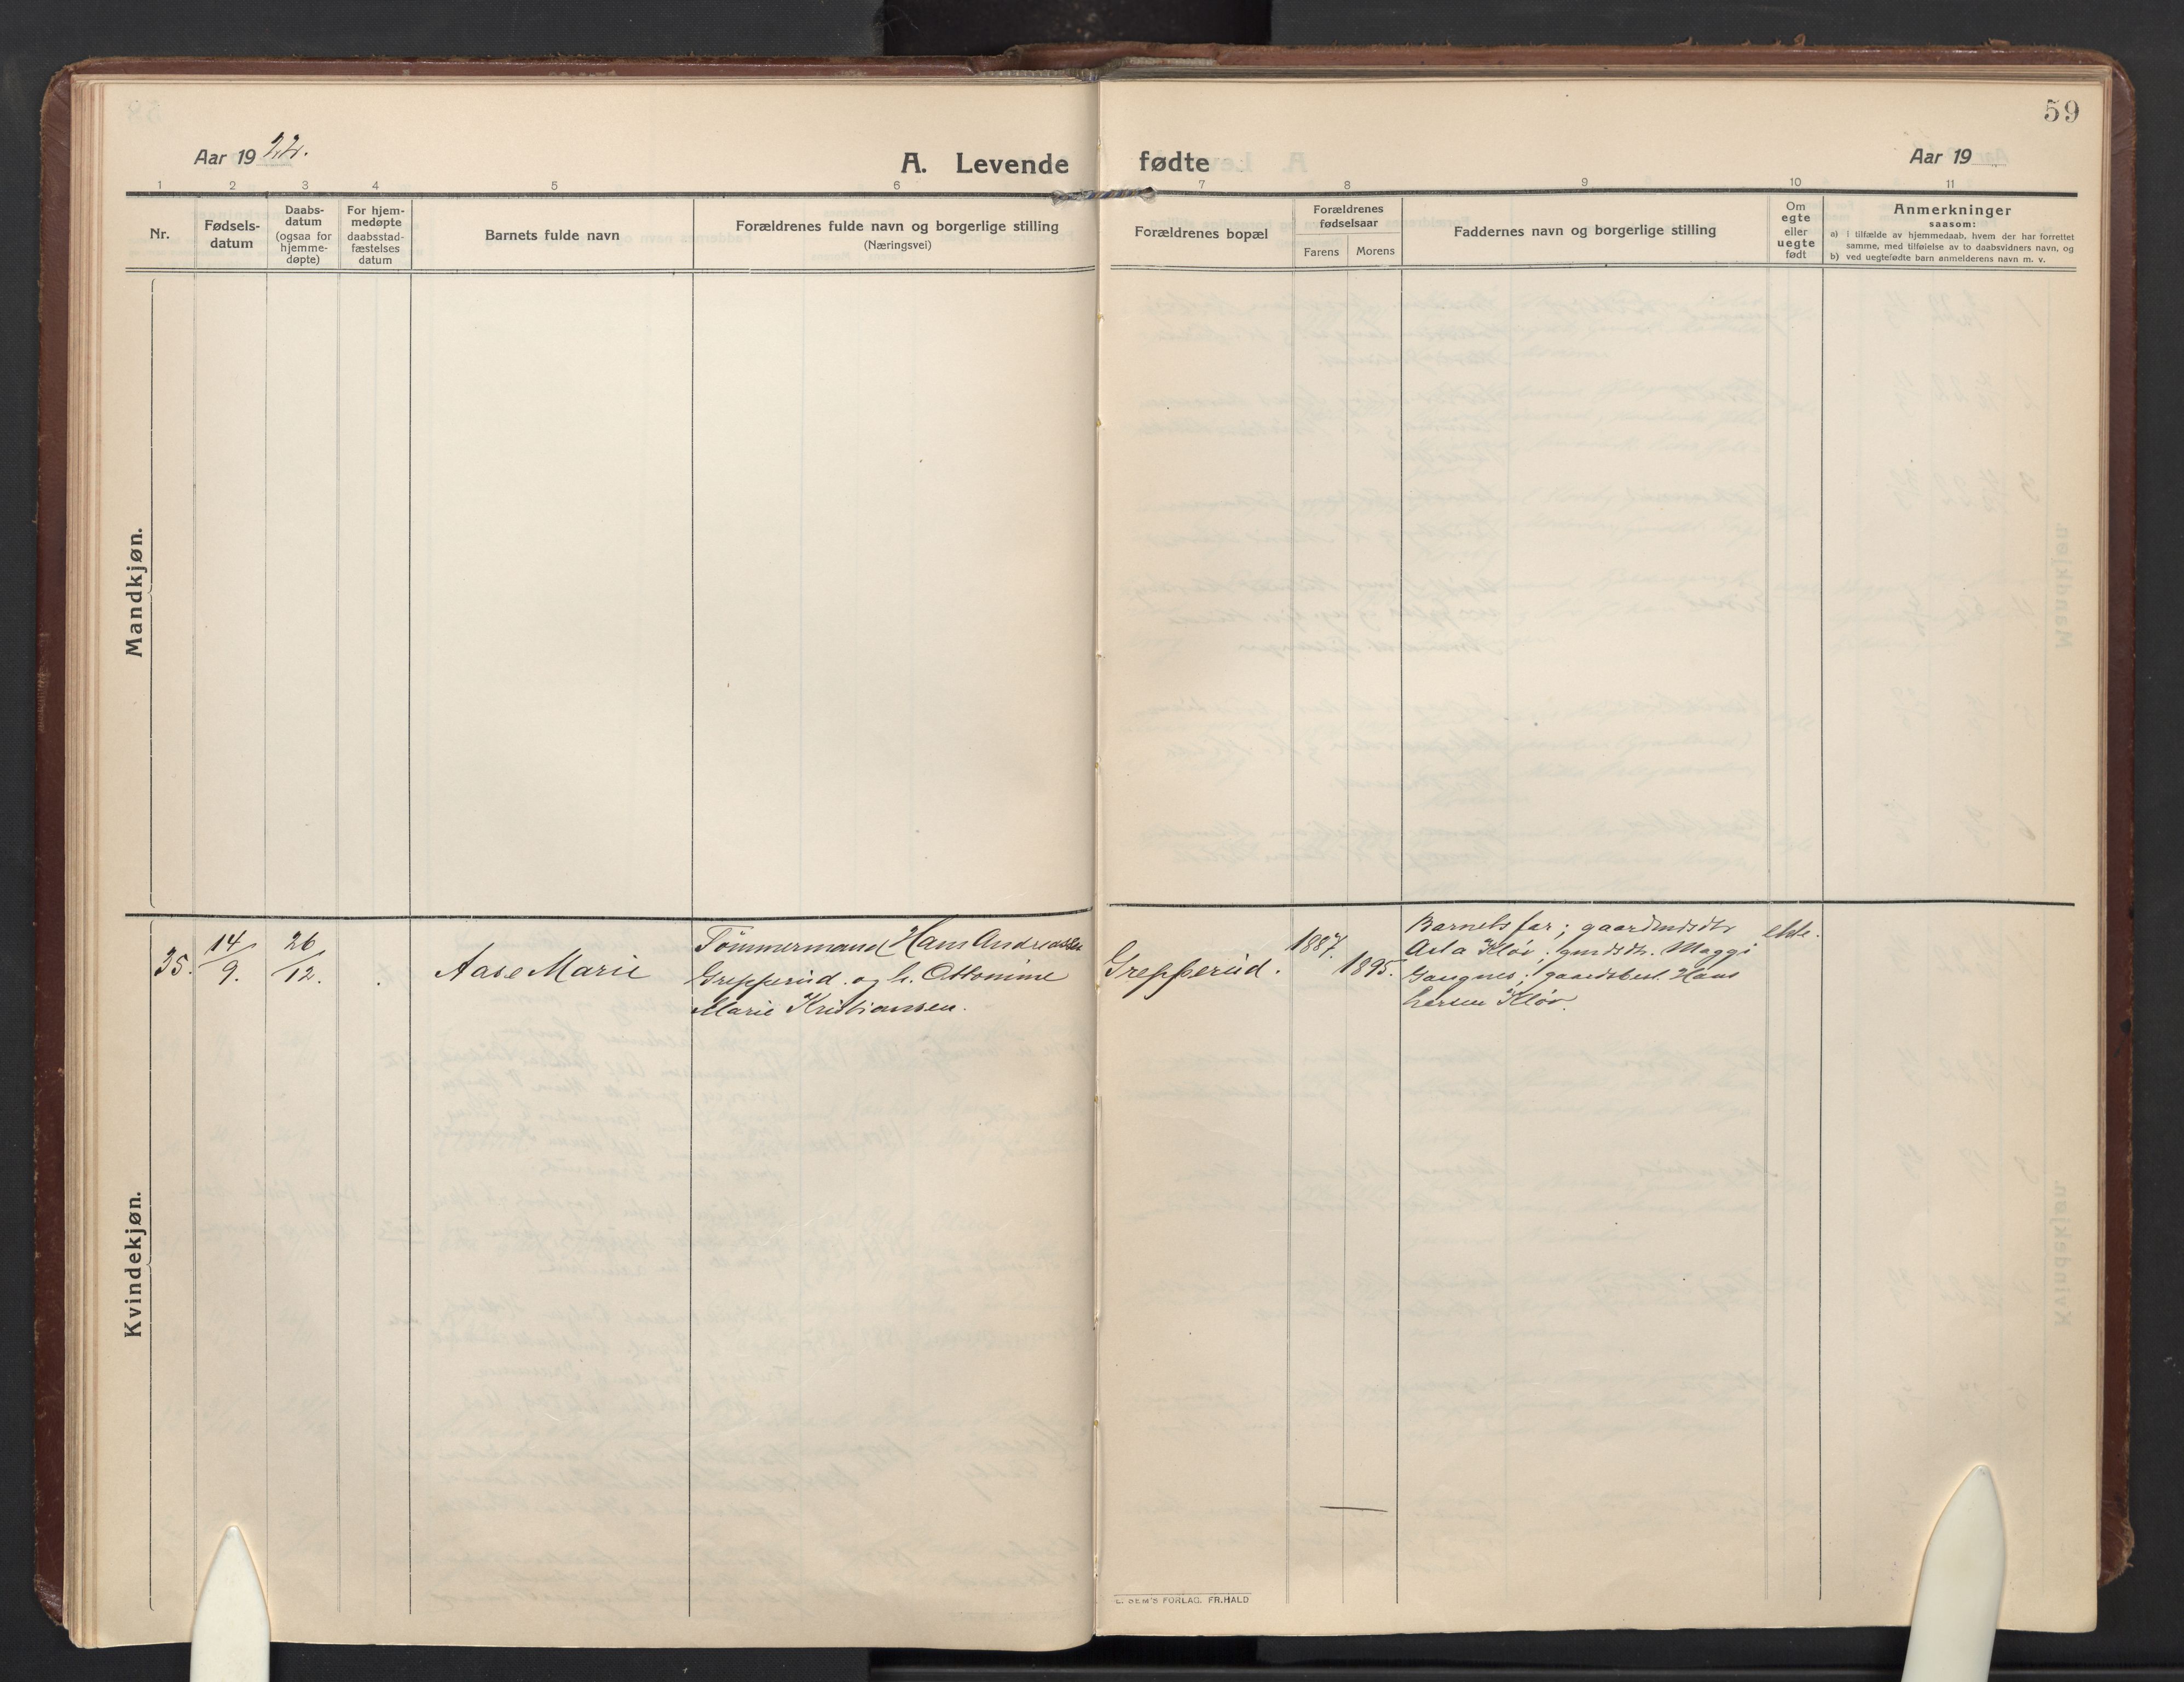 59
Aar 1922.
A. Levende fødte
Aar 19
1 2 3 4 5 6 7 8 9 10 11
Nr.
Fødsels-
datum
Daabs-
datum
(ogsaa for
hjemme-
døpte)
For hjem-
medøpte
daabsstad-
fæstelses
datum
Barnets fulde navn
Forældrenes fulde navn og borgerlige stilling
(Næringsvei)
Forældrenes bopæl
Forældrenes
fødselsaar
Farens Morens
Faddernes navn og borgerlige stilling
Om
egte
eller
uegte
født
Anmerkninger
saasom:
a) i tilfælde av hjemmedaab, hvem der har forrettet
samme, med tilføielse av to daabsvidners navn, og
b) ved uegtefødte barn anmelderens navn m. v.
Mandkjøn.
Kvindekjøn.
35.
14/9.
26/12.
Aase Marie
Tømmermand Hans Andreassen
Grepperud. og h. Ottomine
Marie Kristiansen.
Grepperud.
1887.
1895.
Barnets far; gaardmdsdtr
Asta Kløv; gmdsdtr. Maggi
Gaugnes; gaardsbest. Hans
Larsen Kløv.
ekte.
E. SEM'S FORLAG. FR. HALD